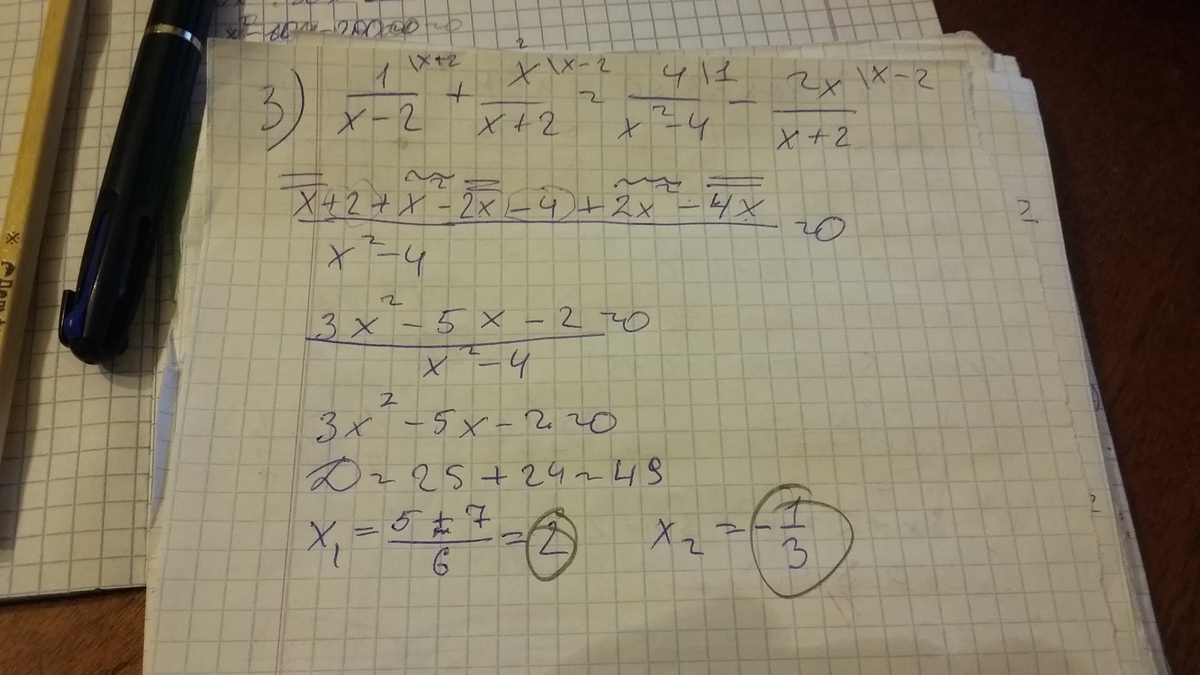 3) \frac{1}{x-2}^{\x+2} + \frac{x}{x+2}^{\x-2} = \frac{4}{x^2-4}^{\1} - \frac{2x}{x+2}^{\x-2}
\frac{x+2+x^2-2x-4+2x^2-4x}{x^2-4} = 0
\frac{3x^2-5x-2}{x^2-4} = 0
3x^2-5x-2=0
D=25+24=49
x_1 = \frac{5±7}{6} = 2   x_2 = -\frac{1}{3}